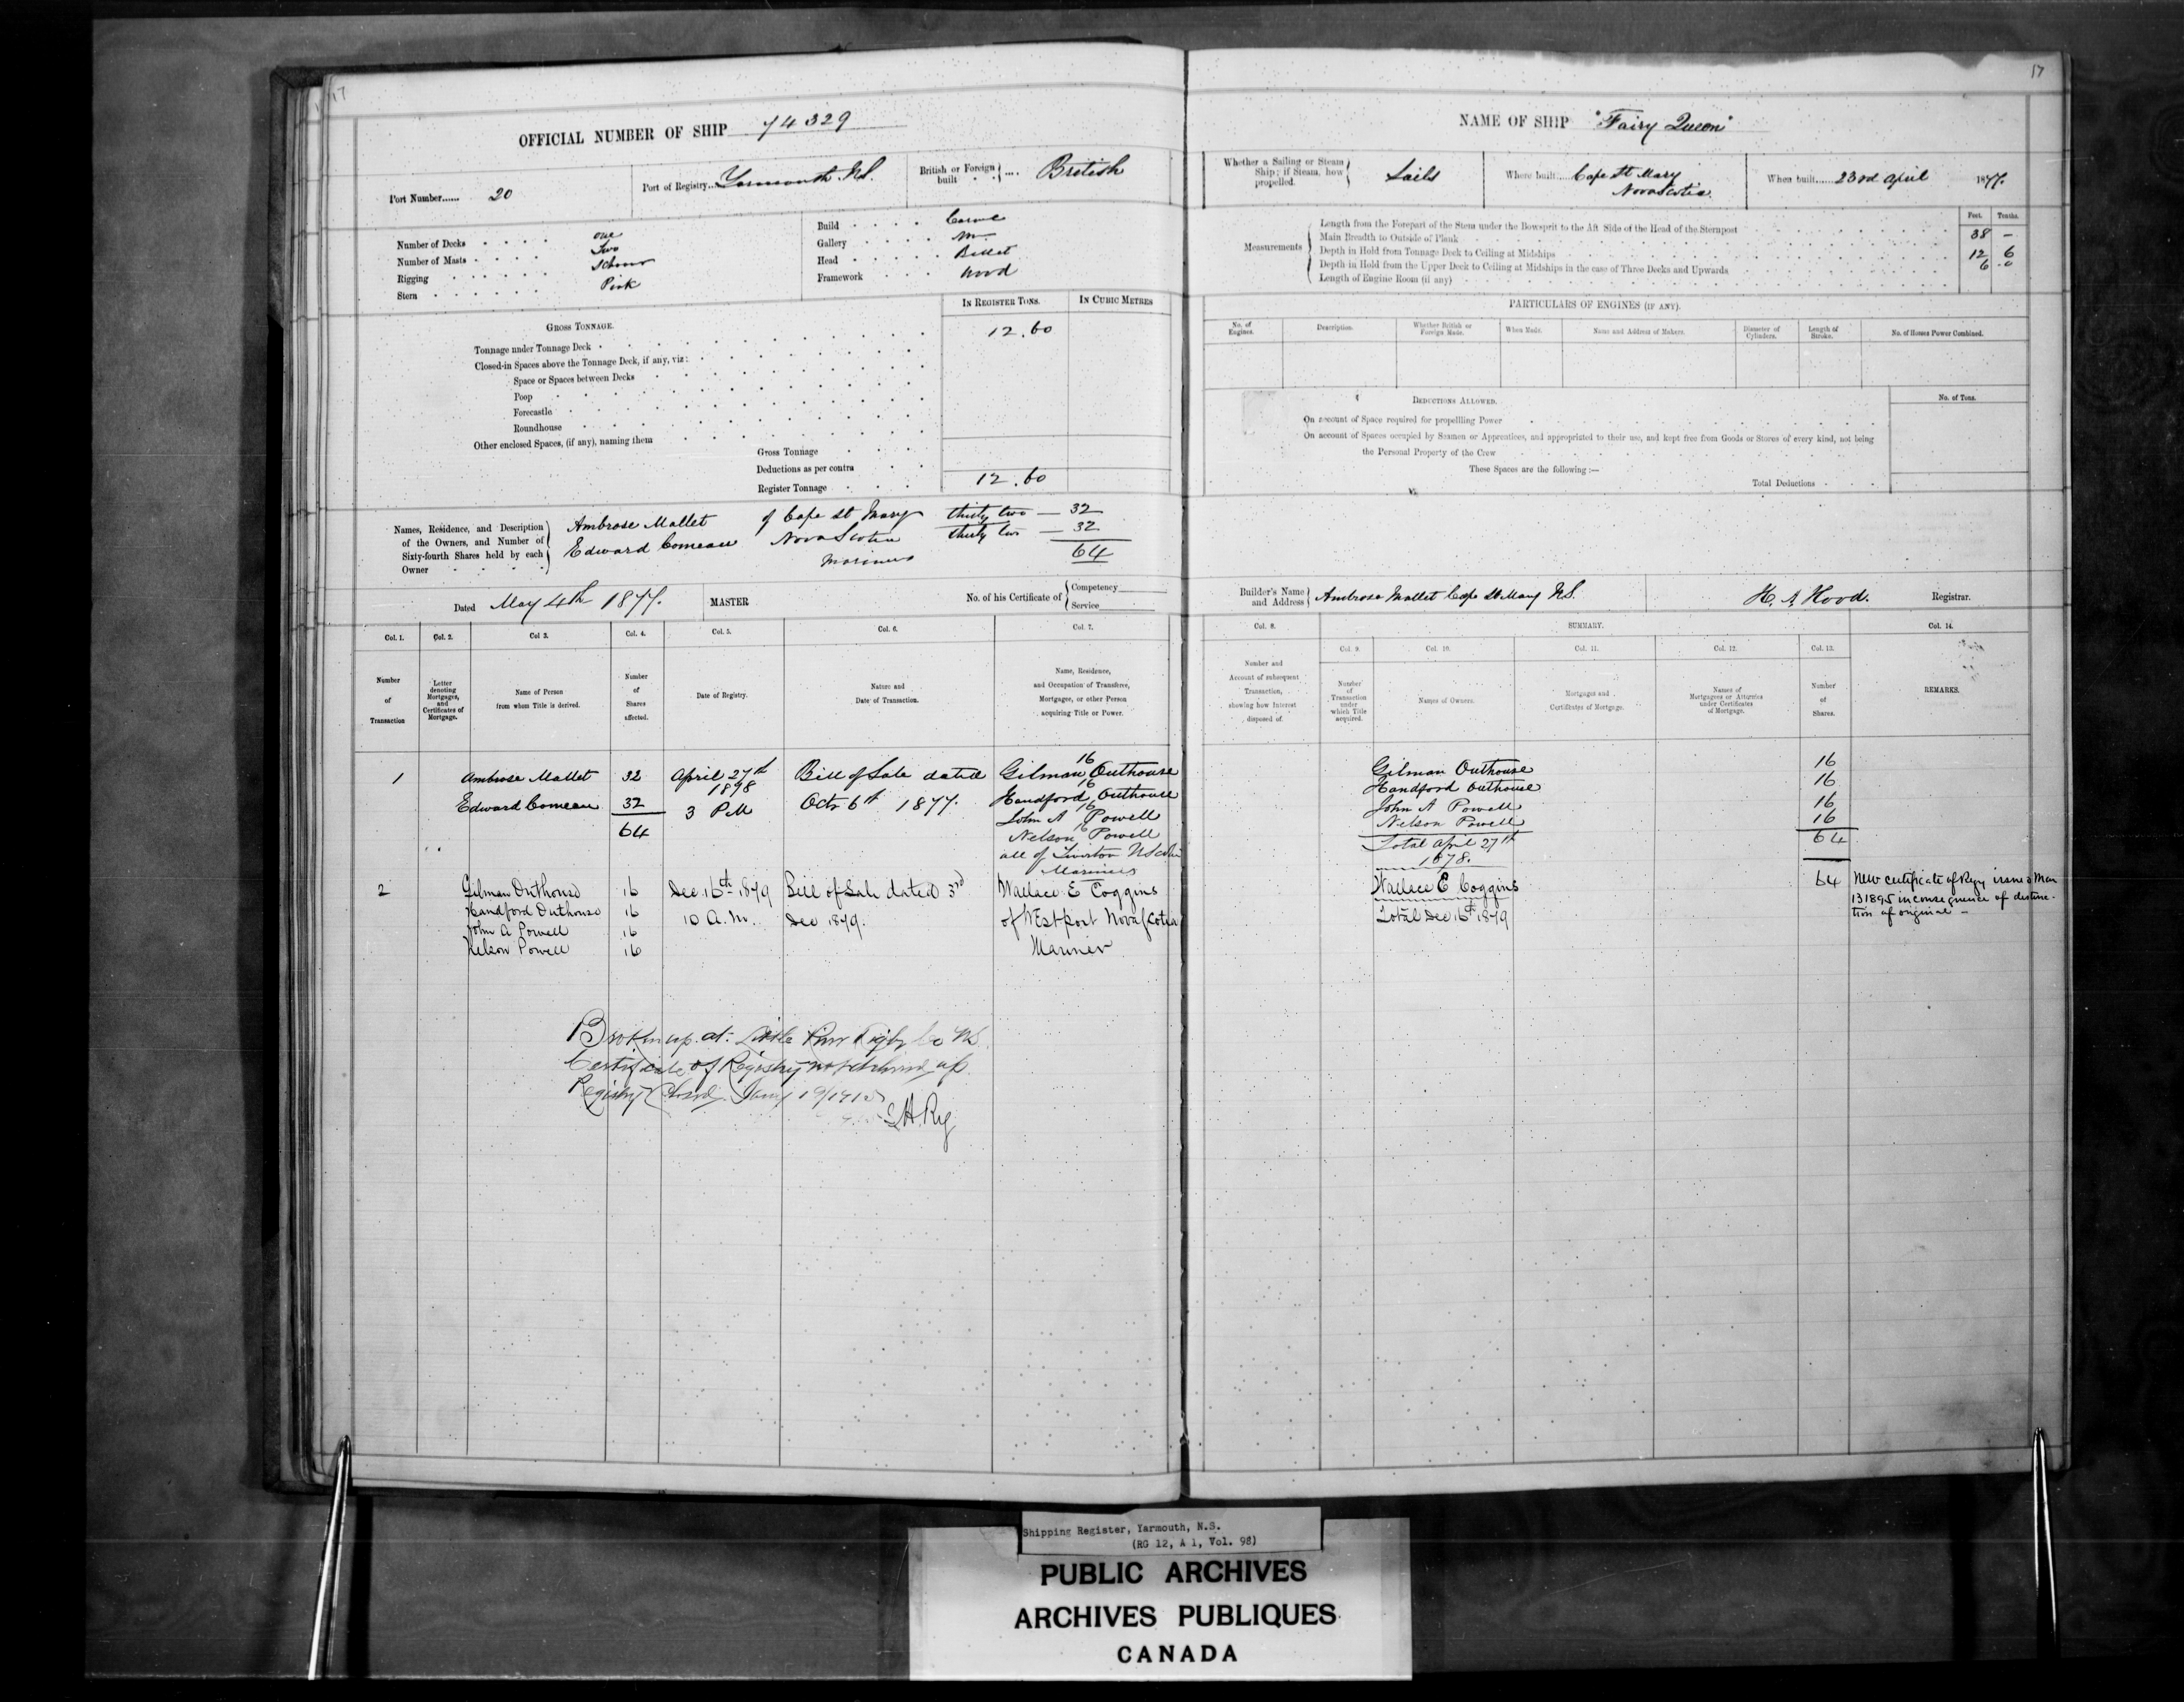 17
OFFICIAL NUMBER OF SHIP 74329
Port Number...... 20
Port of Registry... Yarmouth N.S.
British or Foreign built .... British
Number of Decks . . . . one
Number of Masts . . . . Two
Rigging . . . . Schoonr
Stern . . . . Pink
Build . . . . Carvel
Gallery . . . .
Head . . . . Billet
Framework . . . . Wood
IN REGISTER TONS.
IN CUBIC METRES
GROSS TONNAGE.
Tonnage under Tonnage Deck . 12.60
Closed-in Spaces above the Tonnage Deck, if any, viz:
Space or Spaces between Decks
Poop
Forecastle
Roundhouse
Other enclosed Spaces, (if any), naming them
Gross Tonnage
Deductions as per contra
Register Tonnage 12.60
Names, Residence, and Description of the Owners, and Number of Sixty-fourth Shares held by each Owner
Ambrose Mallet of Cape St Mary thirty two — 32
Edward Comeau Nova Scotia thirty two — 32
Mariners 64
Dated May 4th 1877.
MASTER
No. of his Certificate of { Competency
Service
Col. 1. Col. 2. Col 3. Col. 4. Col. 5. Col. 6. Col. 7.
Number of Transaction
Letter denoting Mortgages, and Certificates of Mortgage.
Name of Person from whom Title is derived.
Number of Shares affected.
Date of Registry.
Nature and Date of Transaction.
Name, Residence, and Occupation of Transferee, Mortgagee, or other Person acquiring Title or Power.
1 Ambrose Mallet 32 April 27th Bill of Sale dated Gilman 16 Outhouse
Edward Comeau 32 1898 3 PM Octr 6th 1877. Handford 16 Outhouse
64 John A 16 Powell
Nelson 16 Powell
all of Tiverton N Scotia
Mariners
2 Gilman Outhouse 16 Dec 16th 1879 Bill of Sale dated 3rd Wallace E Coggins
Handford Outhouse 16 10 A.M. Dec 1879. of Westport Nova Scotia
John A Powell 16
Nelson Powell 16 Mariner
Broken up at Little River Digby Co NS.
Certificate of Registry not delivered up.
Registry Closed. Jany 19/1915
Reg
17
NAME OF SHIP "Fairy Queen"
Whether a Sailing or Steam Ship; if Steam, how propelled. Sails
Where built.... Cape St Mary
Nova Scotia.
When built...... 23rd April 1877.
Measurements
Feet. Tenths.
Length from the Forepart of the Stem under the Bowsprit to the Aft Side of the Head of the Sternpost 38 –
Main Breadth to Outside of Plank 12 6
Depth in Hold from Tonnage Deck to Ceiling at Midships 6 0
Depth in Hold from the Upper Deck to Ceiling at Midships in the case of Three Decks and Upwards
Length of Engine Room (if any)
PARTICULARS OF ENGINES (IF ANY).
No. of Engines. Description. Whether British or Foreign Made. When Made. Name and Address of Makers. Diameter of Cylinders. Length of Stroke. No. of Horses Power Combined.
DEDUCTIONS ALLOWED.
No. of Tons.
On account of Space required for propellling Power
On account of Spaces occupied by Seamen or Apprentices, and appropriated to their use, and kept free from Goods or Stores of every kind, not being
the Personal Property of the Crew
These Spaces are the following :—
Total Deductions
Builder's Name and Address } Ambrose Mallet Cape St Mary N.S.
H. A. Hood. Registrar.
Col. 8. SUMMARY. Col. 14.
Col. 9. Col. 10. Col. 11. Col. 12. Col. 13.
Number and Account of subsequent Transaction, showing how Interest disposed of.
Number of Transaction under which Title acquired.
Names of Owners.
Mortgages and Certificates of Mortgage.
Names of Mortgagees or Attornies under Certificates of Mortgage.
Number of Shares.
REMARKS.
Gilman Outhouse 16
Handford Outhouse 16
John A Powell 16
Nelson Powell 16
Total April 27th 64
1878.
Wallace E Coggins 64
Total Dec 16th 1879
New certificate of Regy issued Mar
13 1895 in consequence of destruc-
tion of original —
Shipping Register, Yarmouth, N.S.
(RG 12, A 1, Vol. 98)
PUBLIC ARCHIVES
ARCHIVES PUBLIQUES
CANADA